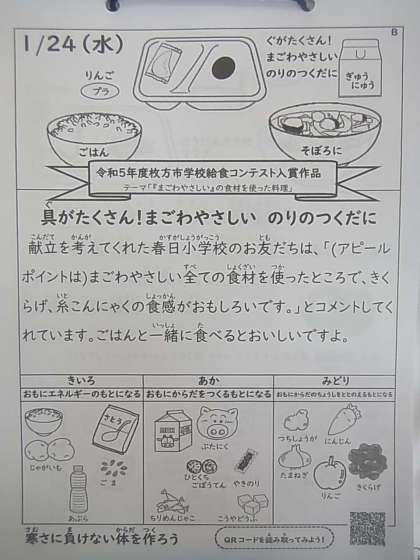 1/24(水)
B
りんご
プラ
ぐがたくさん!
まごわやさしい
のりのつくだに
ぎゅう
にゅう
ごはん
そぼろに
令和5年度枚方市学校給食コンテスト入賞作品
テーマ「『まごわやさしい』の食材を使った料理」
具がたくさん!まごわやさしい のりのつくだに
献立を考えてくれた春日小学校のお友だちは、「(アピール
ポイントは)まごわやさしい全ての食材を使ったところで、きく
らげ、糸こんにゃくの食感がおもしろいです。」とコメントしてく
れています。ごはんと一緒に食べるとおいしいですよ。
きいろ
おもにエネルギーのもとになる
じゃがいも
さとう
ごま
あぶら
あか
おもにからだをつくるもとになる
ぶたにく
ひとくち
ごぼうてん
やきのり
ちりめんじゃこ
こうやどうふ
みどり
おもにからだのちょうしをととのえるもとになる
つちしょうが
にんじん
たまねぎ
りんご
きくらげ
寒さに負けない体を作ろう
QRコードを読み取ってみよう!